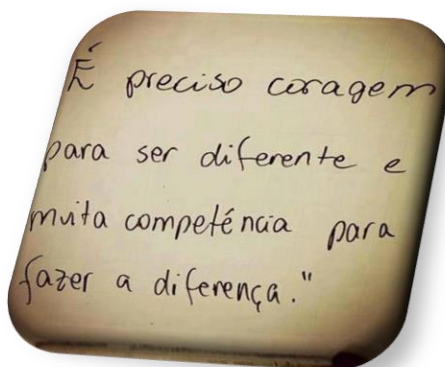 É preciso coragem
para ser diferente e
muita competência para
fazer a diferença."